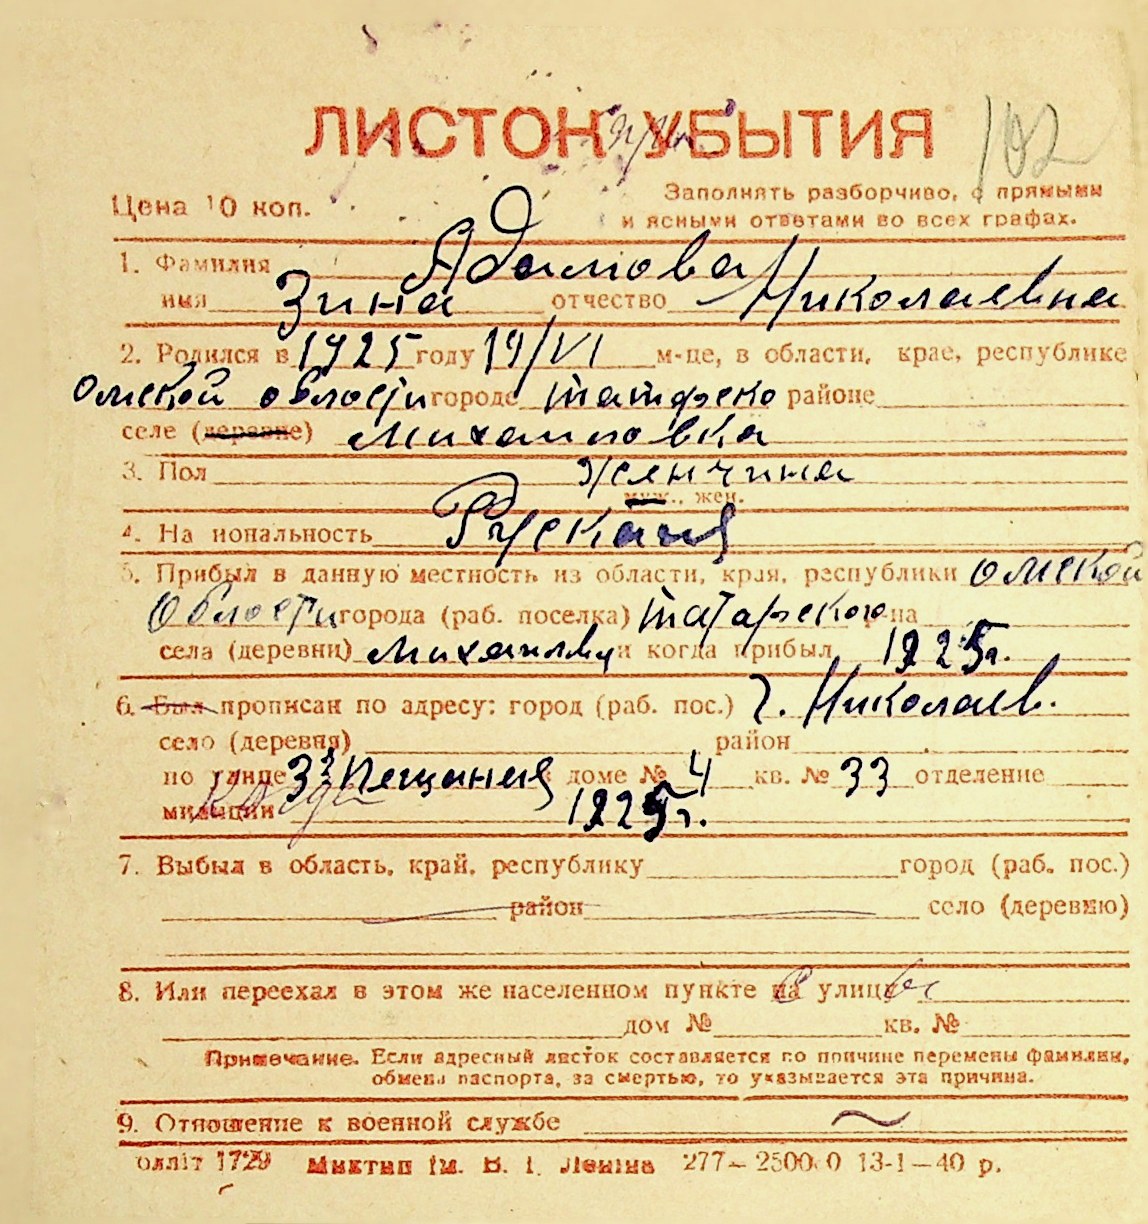 ЛИСТОК УБЫТИЯ
102
Цена 10 коп.
Заполнять разборчиво, с прямыми
и ясными ответами во всех графах.
1. Фамилия Адамова
имя Зина отчество Николаевна
2. Родился в 1925 году 19/VI м-це, в области, крае, республике
Омской области городе татарско районе
селе (деревне) Михаиловка
3. Пол женчина
муж., жен.
4. Национальность Руская
5. Прибыл в данную местность из области, края, республики омской
области города (раб. поселка) татарского р-на
села (деревни) и когда прибыл 1925г.
6. Был прописан по адресу: город (раб. пос.) г. Николаев.
село (деревня) район
по улице 3я Песчаная доме № 4 кв. № 33 отделение
милиции когда 1925г.
7. Выбыл в область, край, республику город (раб. пос.)
район село (деревню)
8. Или переехал в этом же населенном пункте на улицу
дом № кв. №
Примечание. Если адресный листок составляется по причине перемены фамилии,
обмена паспорта, за смертью, то указывается эта причина.
9. Отношение к военной службе
олліт 1729 Миктип ім. В. І. Леніна 277—25000 13-1—40 р.